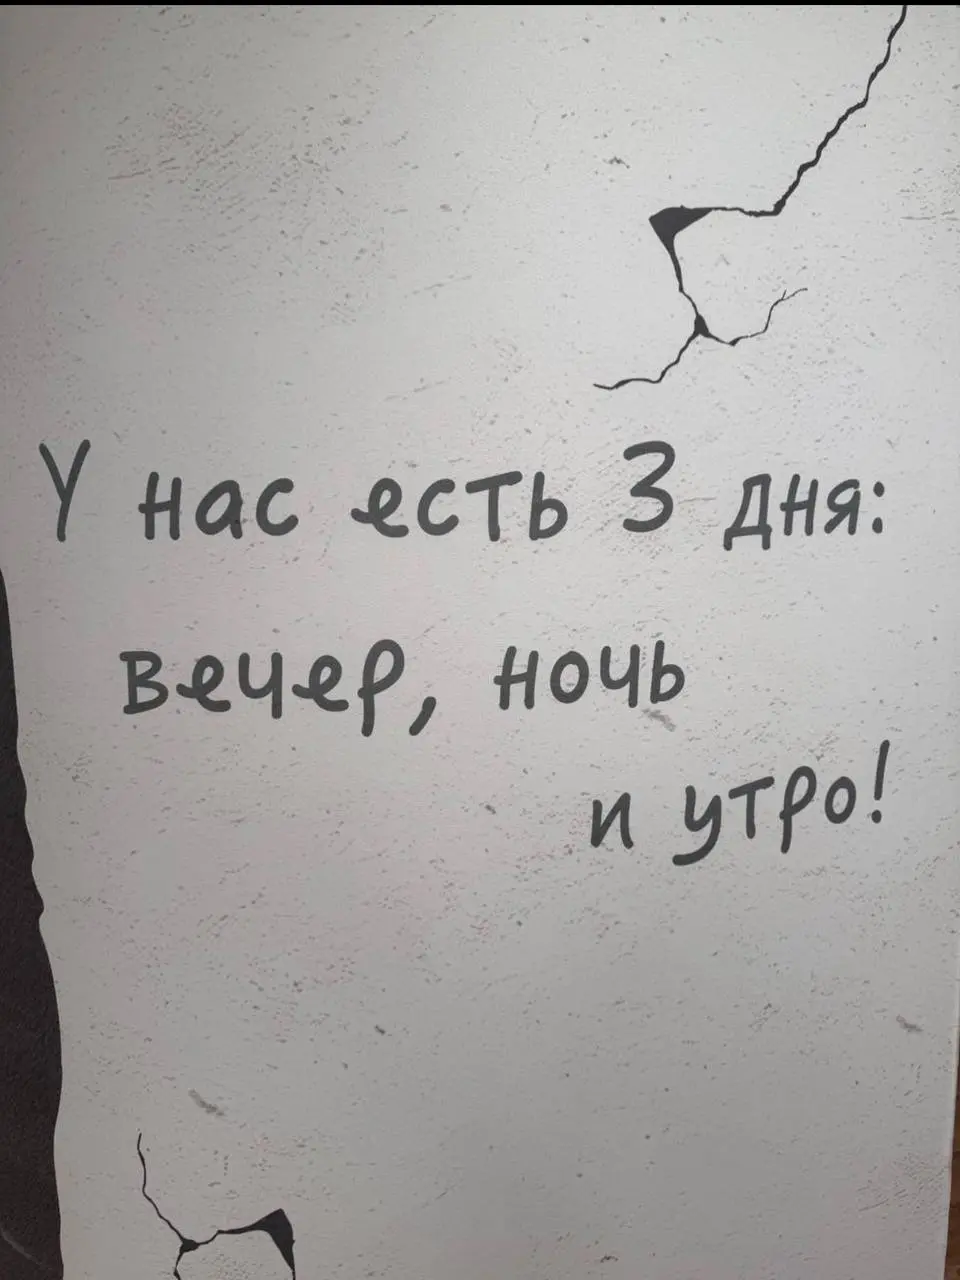 У нас есть 3 дня:
вечер, ночь
и утро!